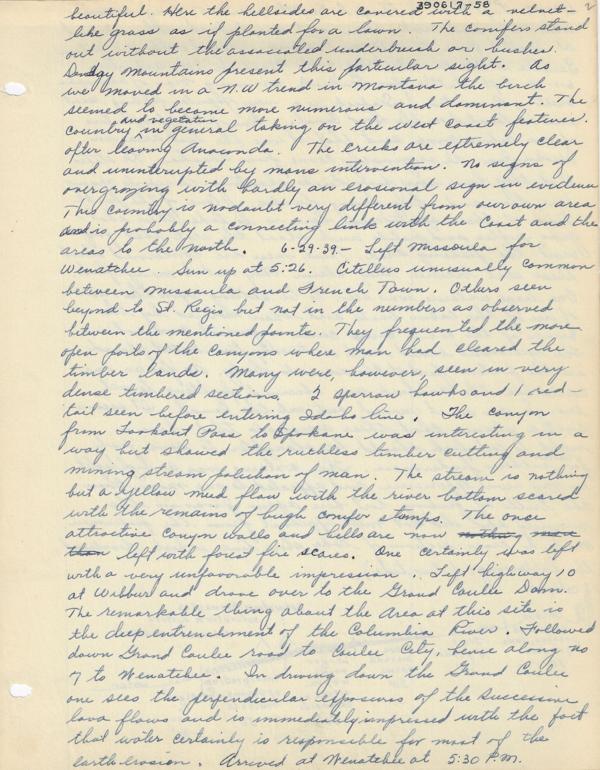 390617-58
2
beautiful. Here the hillsides are covered with a velvet-
like grass as if planted for a lawn. The conifers stand
out without the associated underbrush or bushes.
mountains present this particular sight. As
we moved in a N.W trend in Montana the birch
seemed to become more numerous and dominant. The
country and vegetation in general taking on the west coast features.
after leaving Anaconda. The cricks are extremely clear
and uninterupted by mans intervention. No signs of
overgrazing with hardly an erosional sign in evidence
This country is nodoubt very different from our own area
and is probably a connecting link with the Coast and the
areas to the north. 6-29-39- Left Missoula for
Wenatchee. Sun up at 5:26. Citellus unusually common
between Missoula and French Town. Others seen
beyond to St. Regis but not in the numbers as observed
between the mentioned points. They frequented the more
open parts of the canyons where man had cleared the
timber lands. Many were, however, seen in very
dense timbered sections. 2 sparrow hawks and 1 red-
tail seen before entering Idaho line. The canyon
from Lookout Pass to Spokane was interesting in a
way but showed the ruthless timber cutting and
mining stream polution of man. The stream is nothing
but a yellow mud flow with the river bottom seared
with the remains of high conifer stumps. The once
attractive canyon walls and hills are now nothing more
than left with forest fire scares. One certainly was left
with a very unfavorable impression. Left highway 10
at Wilbur and drove over to the Grand Coulee Dam.
The remarkable thing about the area at this site is
the deep entrenchment of the Columbia River. Followed
down Grand Coulee road to Coulee City, hence along no
7 to Wenatchee. In driving down the Grand Coulee
one sees the perpendicular exposures of the successive
lava flows and is immediately impressed with the fact
that water certainly is responsible for most of the
earth erosion. Arrived at Wenatchee at 5:30 P.M.